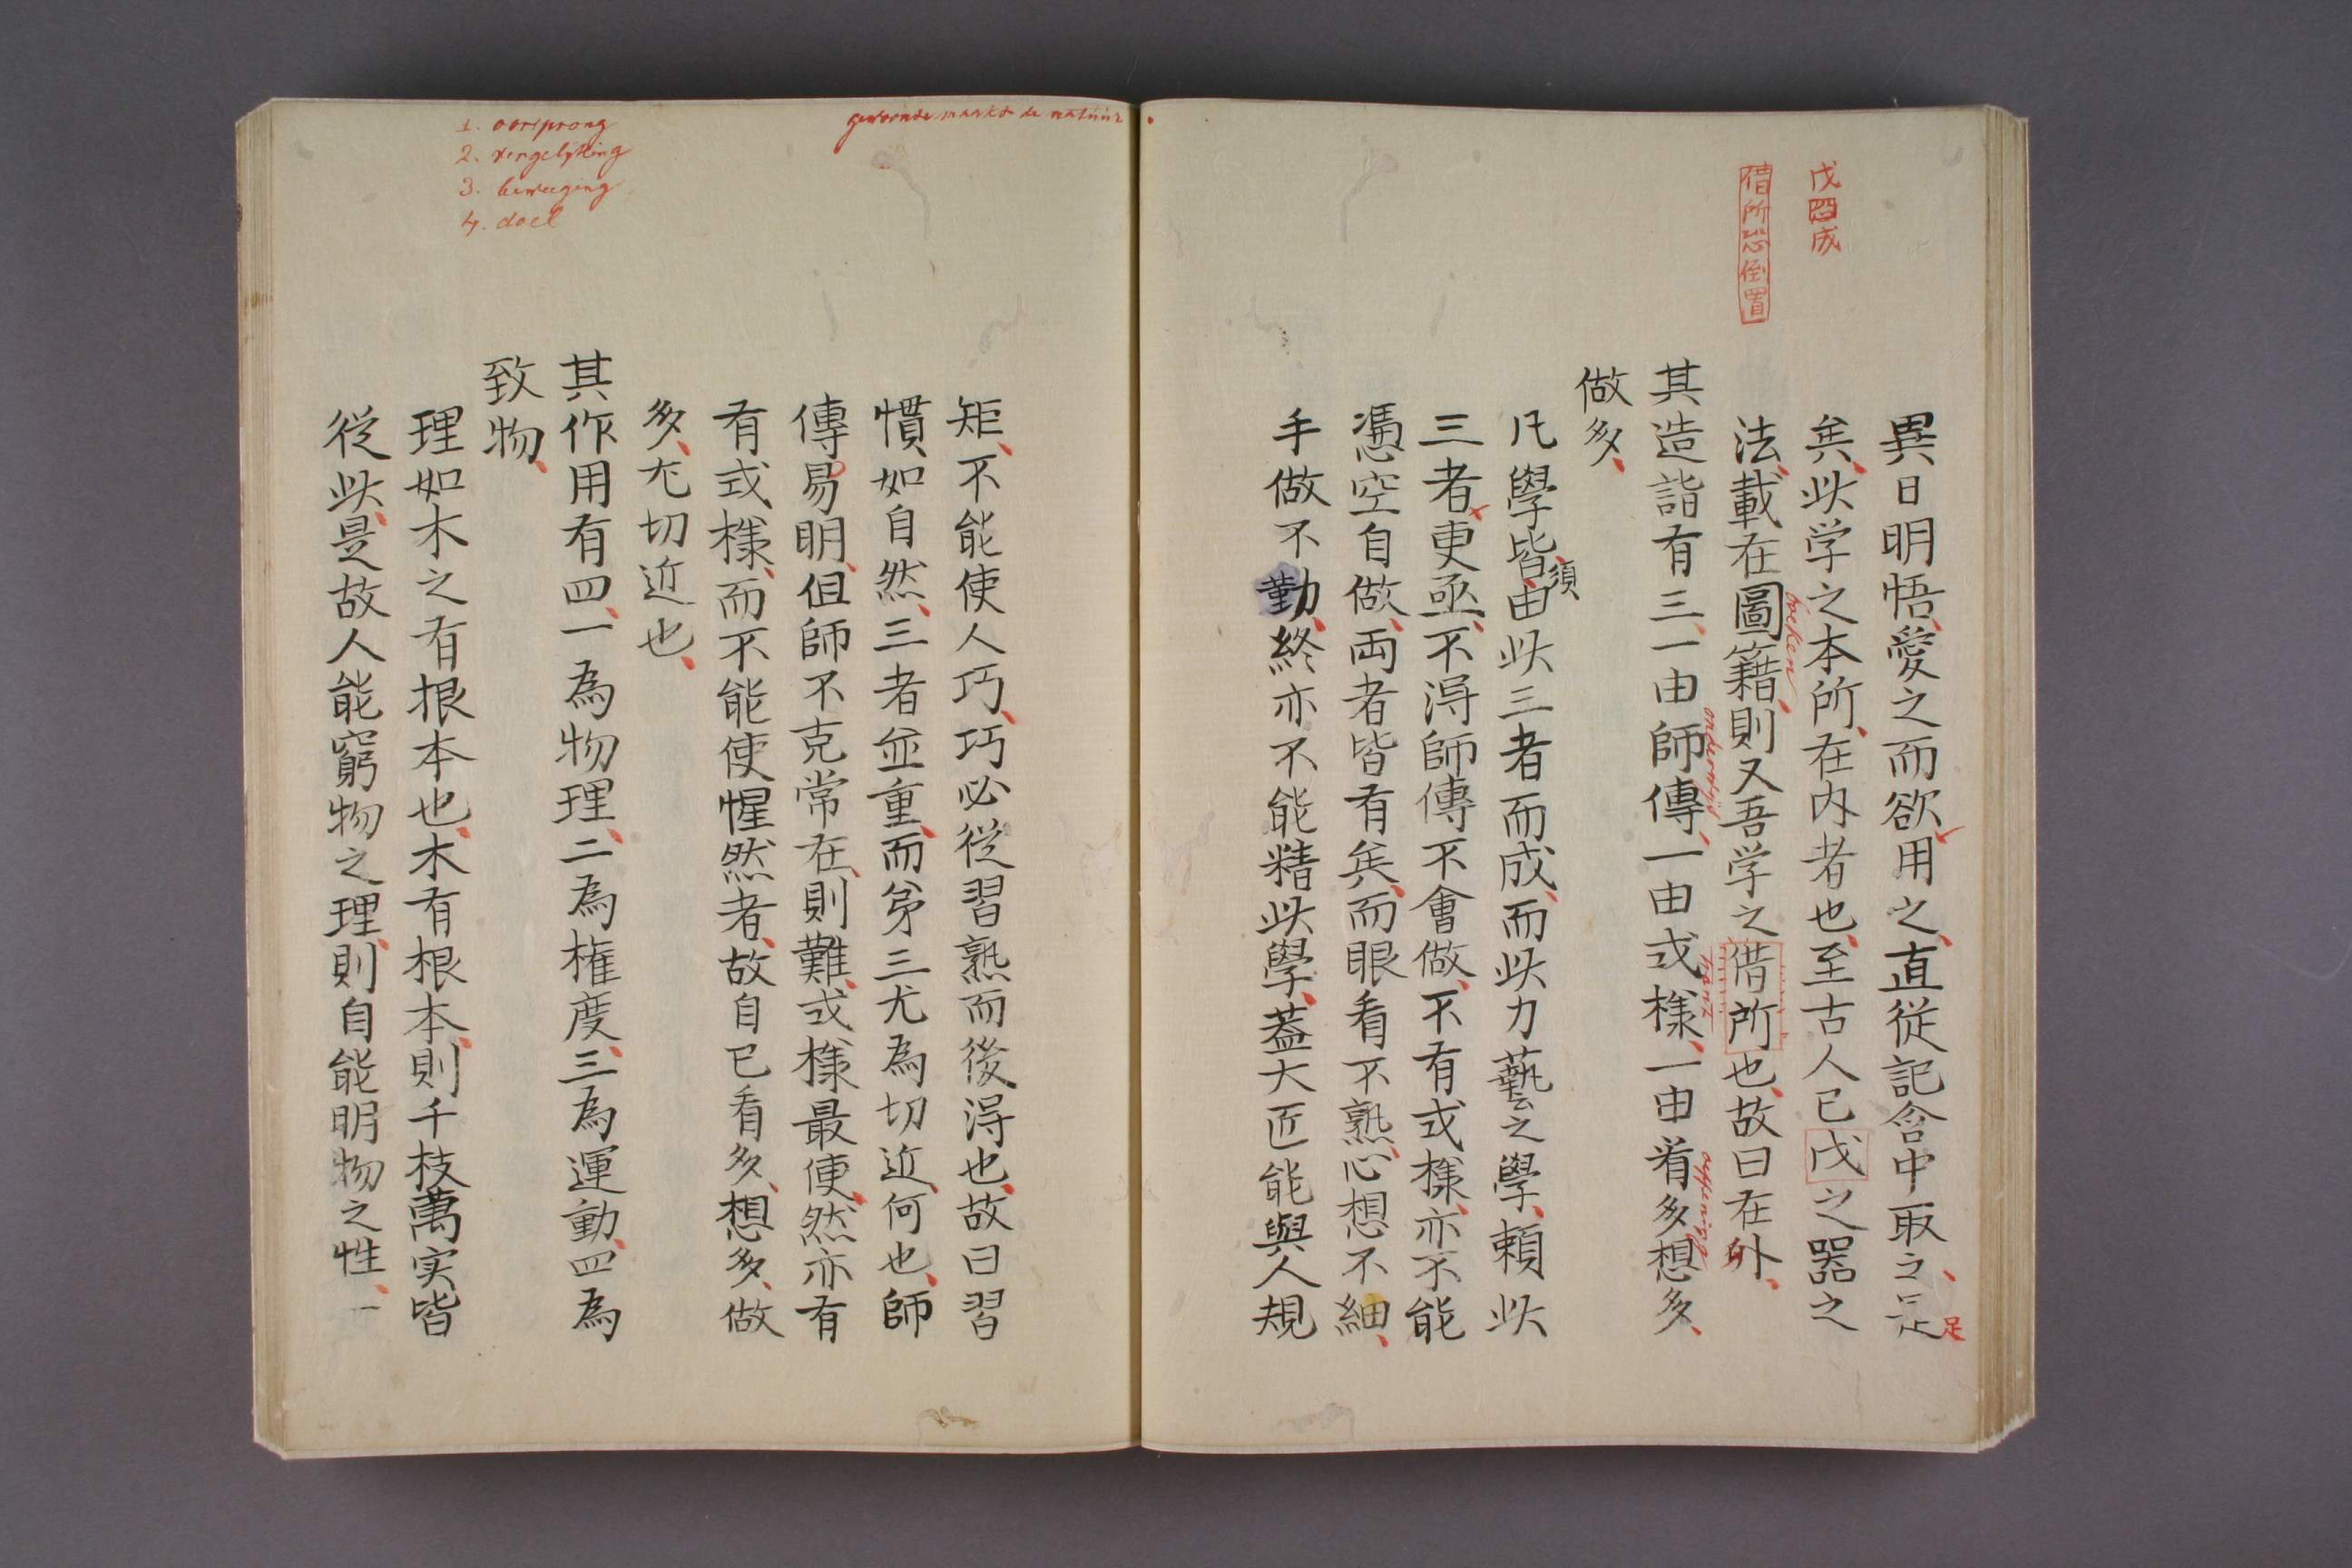 戊四成
借所恐倒置
異日明悟、愛之而欲用之、直從記含中取之、足
足
矣、此学之本所、在内者也、至古人已戊之器之
法、載在圖籍、則又吾学之借所也、故曰在外、
boeken
其造詣有三、一由師傳、一由式様、一由看多想多、
onderwijs
oeffening
做多、
凡學皆、由此三者而成、而此力藝之學、頼此
須
三者更亟、不得師傳不會做、不有式様、亦不能
憑空自做、両者皆有矣、而眼看不熟、心想不細、
手做不勤、終亦不能精此學、蓋大匠能與人規
gewoonde maakt de natuur
矩、不能使人巧、巧必從習熟而後得也、故曰習
慣如自然、三者並重、而第三尤為切近、何也、師
傳易明、但師不克常在、則難、式様最便、然亦有
有式様、而不能使惺然者、故自已看多、想多、做
多、尤切近也、
1. oorsprong
2. vergelijking
3. beweeging
4. doel
其作用有四、一為物理、二為権度、三為運動、四為
致物、
理如木之有根本也、木有根本、則千枝萬実皆
從此、是故人能窮物之理、則自能明物之性、一